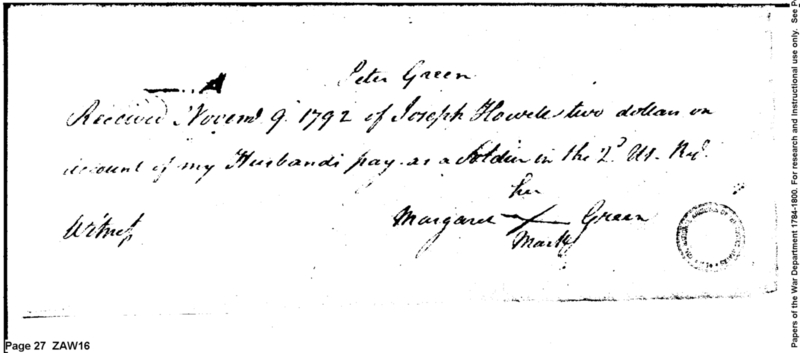 Peter Green
Received Novemr 9. 1792 of Joseph Howell two dollars on
account of my Husbands pay as a Soldier in the 2d. Us. Regt.
her
Margaret X Green
Mark
Witness
Page 27 ZAW16
Papers of the War Department 1784-1800. For research and instructional use only. See